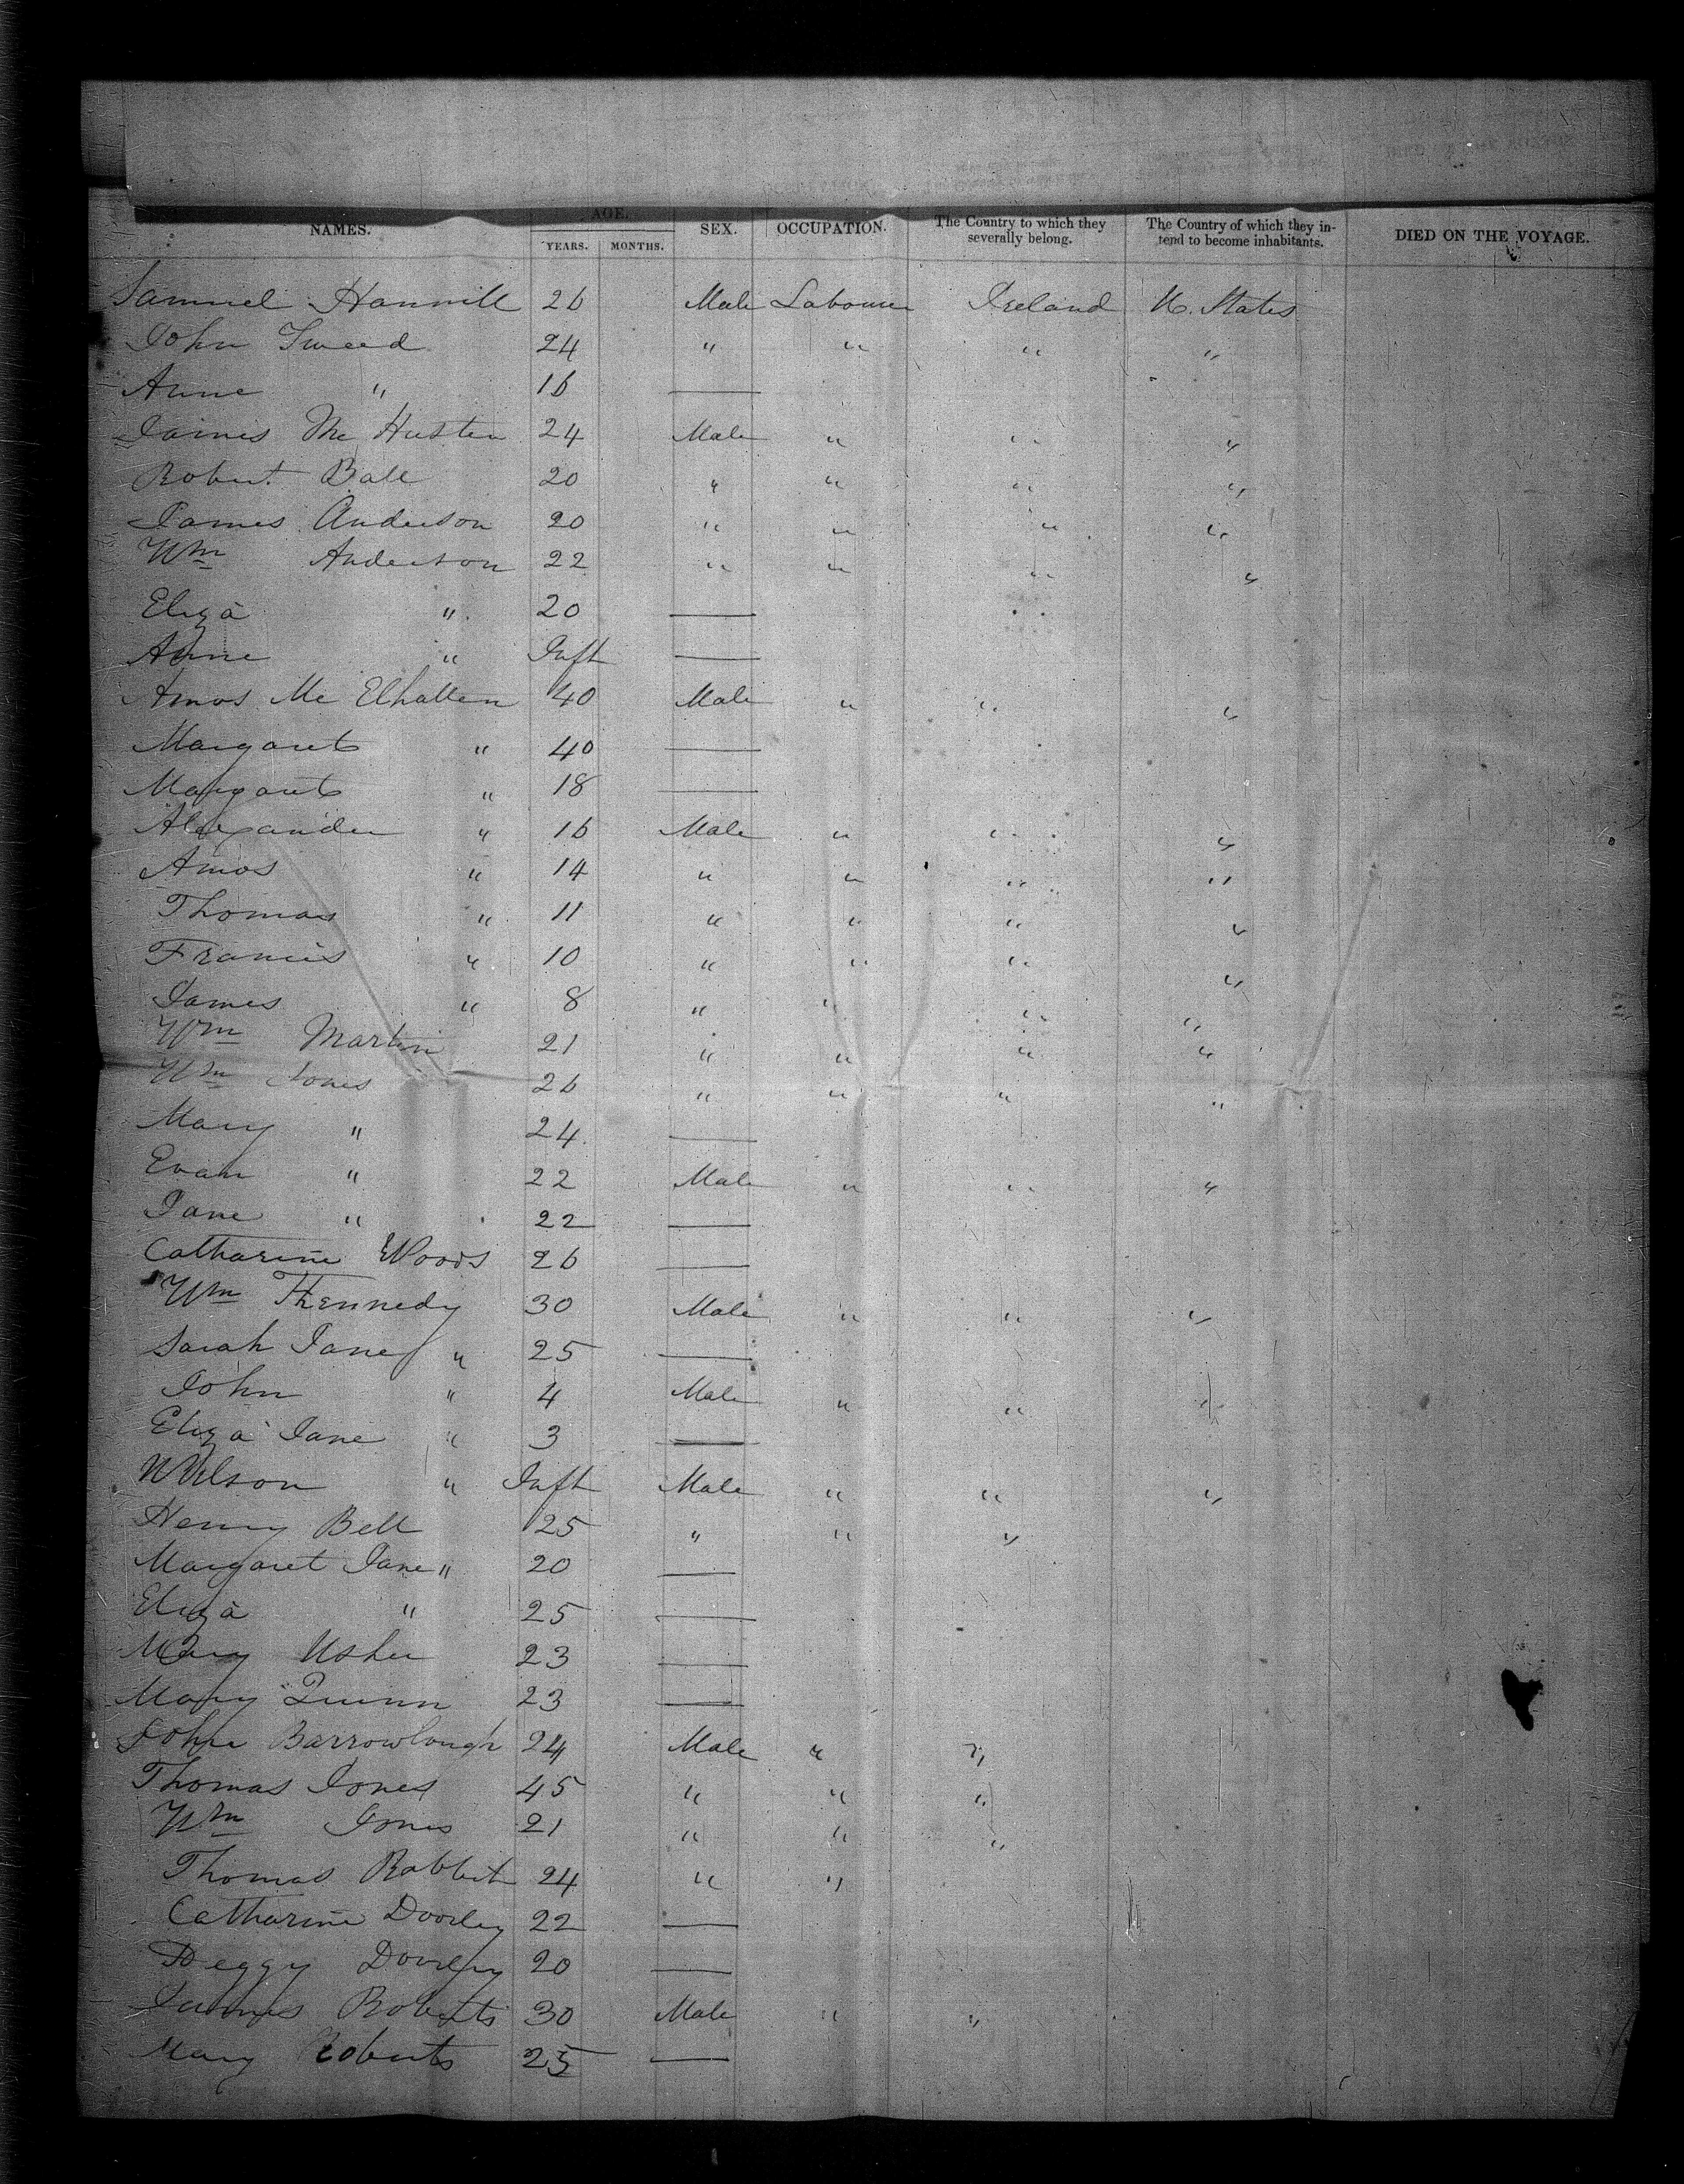 NAMES. AGE. YEARS. MONTHS. SEX. OCCUPATION. The Country to which they severally belong. The Country of which they intend to become inhabitants. DIED ON THE VOYAGE.
Samuel Hannill 26 Male Labourer Ireland U. States
John Tweed 24 " " " "
Anne " 16 —
James Mc Husten 24 Male " " "
Robert Ball 20 " " " "
James Anderson 20 " " " "
Wm Anderson 22 " " " "
Eliza " 20 —
Anne " Inft —
Amos Mc Elhatten 40 Male " " "
Margaret " 40 —
Margaret " 18 —
Alexander " 16 Male " " "
Amos " 14 " " " "
Thomas " 11 " " " "
Francis " 10 " " " "
James " 8 " " " "
Wm Martin 21 " " " "
Wm Jones 26 " " " "
Mary " 24 —
Evan " 22 Male " " "
Jane " 22 —
Catharine Woods 26 —
Wm Kennedy 30 Male " " "
Sarah Jane " 25 —
John " 4 Male " " "
Eliza Jane " 3 —
Wilson " Inft Male " " "
Henry Bell 25 " " "
Margaret Jane " 20 —
Eliza " 25 —
Mary Usher 23 —
Mary Quinn 23 —
John Barrowlough 24 Male " "
Thomas Jones 45 " " "
Wm Jones 21 " " "
Thomas Rabbit 24 " "
Catharine Dooley 22 —
Peggy Dooley 20 —
James Roberts 30 Male " "
Mary Roberts 25 —